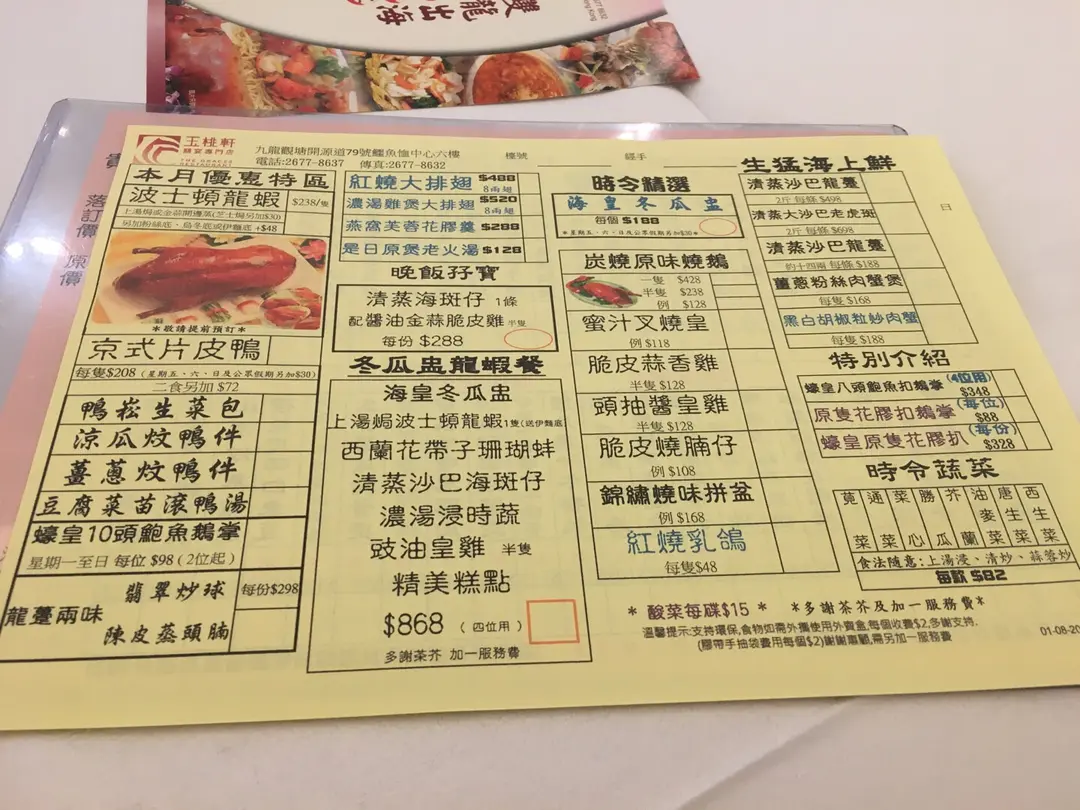 雙龍出海
玉桃軒
龍宴專門店
九龍觀塘開源道79號鱷魚恤中心六樓
電話:2677-8637 傳真:2677-8632
檯號
經手
本月優惠特區
波士頓龍蝦 $238/隻
上湯焗或金蒜開邊蒸(芝士焗另加$30)
另加粉絲底、烏冬底或伊麵底 +$48
*敬請提前預訂*
京式片皮鴨
每隻$208 (星期五、六、日及公眾假期另加$30)
二食另加 $72
鴨崧生菜包
涼瓜炆鴨件
薑蔥炆鴨件
豆腐菜苗滾鴨湯
蠔皇10頭鮑魚鵝掌
星期一至日 每位 $98 (2位起)
龍躉兩味
翡翠炒球
陳皮蒸頭腩
每份$298
紅燒大排翅 $488
8兩翅
濃湯雞煲大排翅 $520
8兩翅
燕窩芙蓉花膠羹 $288
是日原煲老火湯 $128
晚飯孖寶
清蒸海斑仔 1條
配醬油金蒜脆皮雞 半隻
每份 $288
冬瓜盅龍蝦餐
海皇冬瓜盅
上湯焗波士頓龍蝦1隻(送伊麵底)
西蘭花帶子珊瑚蚌
清蒸沙巴海斑仔
濃湯浸時蔬
豉油皇雞 半隻
精美糕點
$868 (四位用)
多謝茶芥 加一服務費
時令精選
海皇冬瓜盅
每個 $188
*星期五、六、日及公眾假期另加$30*
炭燒原味燒鵝
一隻 $428
半隻 $238
例 $128
蜜汁叉燒皇
例 $118
脆皮蒜香雞
半隻 $128
頭抽醬皇雞
半隻 $128
脆皮燒腩仔
例 $108
錦繡燒味拼盆
例 $168
紅燒乳鴿
每隻$48
生猛海上鮮
清蒸沙巴龍躉
2斤 每條 $498
清蒸大沙巴老虎斑
2斤 每條 $698
清蒸沙巴龍躉
約十四兩 每條 $188
薑蔥粉絲肉蟹煲
每隻 $168
黑白胡椒粒炒肉蟹
每隻 $188
日
特別介紹
蠔皇八頭鮑魚扣鵝掌 (4位用) $348
原隻花膠扣鵝掌 (每位) $88
蠔皇原隻花膠扒 (每份) $328
時令蔬菜
莧菜
通菜
菜心
勝瓜
芥蘭
油麥菜
唐生菜
西生菜
食法隨意:上湯浸、清炒、蒜蓉炒
每款 $82
* 酸菜每碟$15 * *多謝茶芥及加一服務費*
溫馨提示:支持環保,食物如需外攜使用外賣盒,每個收費$2,多謝支持.
(膠帶手抽袋費用每個$2)謝謝惠顧,需另加一服務費
01-08-20